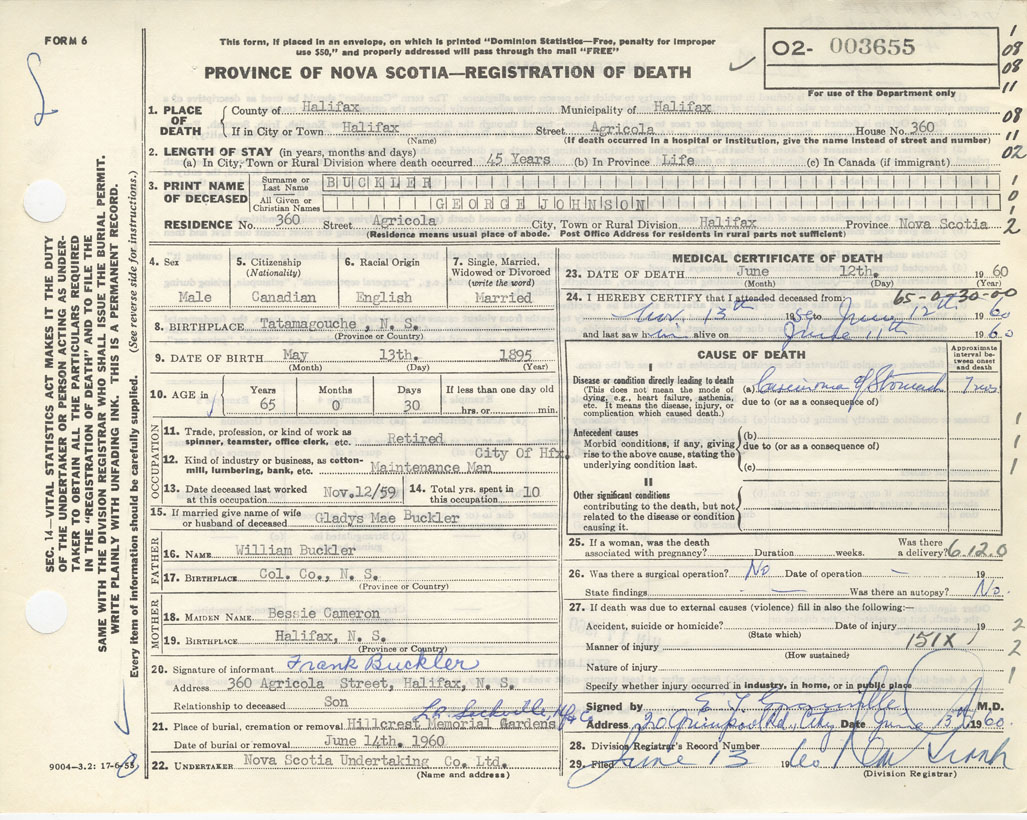 FORM 6
This form, if placed in an envelope, on which is printed "Dominion Statistics—Free, penalty for improper
use $50," and properly addressed will pass through the mail "FREE"
PROVINCE OF NOVA SCOTIA—REGISTRATION OF DEATH
02- 003655
For use of the Department only
1
08
08
11
08
11
02
1
0
1
2
1. PLACE OF DEATH
County of Halifax Municipality of Halifax
If in City or Town Halifax Street Agricola House No. 360
(Name) (If death occurred in a hospital or institution, give the name instead of street and number)
2. LENGTH OF STAY (in years, months and days)
(a) In City, Town or Rural Division where death occurred 45 Years (b) In Province Life (c) In Canada (if immigrant)
3. PRINT NAME OF DECEASED
Surname or Last Name BUCKLER
All Given or Christian Names GEORGE JOHNSON
RESIDENCE No. 360 Street Agricola City, Town or Rural Division Halifax Province Nova Scotia
(Residence means usual place of abode. Post Office Address for residents in rural parts not sufficient)
4. Sex
Male
5. Citizenship (Nationality)
Canadian
6. Racial Origin
English
7. Single, Married, Widowed or Divorced (write the word)
Married
8. BIRTHPLACE Tatamagouche, N. S.
(Province or Country)
9. DATE OF BIRTH May 13th. 1895
(Month) (Day) (Year)
10. AGE in
Years 65
Months 0
Days 30
If less than one day old
hrs. or min.
OCCUPATION
11. Trade, profession or kind of work as
spinner, teamster, office clerk, etc. Retired
12. Kind of industry or business, as cotton-
mill, lumbering, bank, etc. City Of Hfx. Maintenance Man
13. Date deceased last worked
at this occupation Nov.12/59
14. Total yrs. spent in
this occupation 10
15. If married give name of wife
or husband of deceased Gladys Mae Buckler
FATHER
16. NAME William Buckler
17. BIRTHPLACE Col. Co., N. S.
(Province or Country)
MOTHER
18. MAIDEN NAME Bessie Cameron
19. BIRTHPLACE Halifax, N. S.
(Province or Country)
20. Signature of informant Frank Buckler
Address 360 Agricola Street, Halifax, N. S.
Relationship to deceased Son
21. Place of burial, cremation or removal Hillcrest Memorial Gardens
Date of burial or removal June 14th. 1960
22. UNDERTAKER Nova Scotia Undertaking Co. Ltd.
(Name and address)
MEDICAL CERTIFICATE OF DEATH
23. DATE OF DEATH June 12th. 1960
(Month) (Day) (Year)
24. I HEREBY CERTIFY that I attended deceased from:
65-0-30-00
Nov. 13th 1959 to June 12th 1960
and last saw him alive on June 11th 1960
CAUSE OF DEATH
Approximate interval between onset and death
I
Disease or condition directly leading to death
(This does not mean the mode of
dying, e.g., heart failure, asthenia,
etc. It means the disease, injury, or
complication which caused death.)
(a) Carcinoma of Stomach 7 mos.
due to (or as a consequence of)
Antecedent causes
Morbid conditions, if any, giving
rise to the above cause, stating the
underlying condition last.
(b)
due to (or as a consequence of)
(c)
1
1
1
II
Other significant conditions
contributing to the death, but not
related to the disease or condition
causing it.
25. If a woman, was the death
associated with pregnancy? Duration weeks. Was there a delivery?
6.12.0
26. Was there a surgical operation? No Date of operation — 19
State findings — Was there an autopsy? No.
27. If death was due to external causes (violence) fill in also the following:—
Accident, suicide or homicide? Date of injury 19
(State which)
Manner of injury 151X
(How sustained)
Nature of injury
Specify whether injury occurred in industry, in home, or in public place
2
2
1
Signed by M.D.
Address Quinpool Rd., City Date June 13th 1960.
28. Division Registrar's Record Number
29. Filed June 13 1960
(Division Registrar)
SEC. 14—VITAL STATISTICS ACT MAKES IT THE DUTY
OF THE UNDERTAKER OR PERSON ACTING AS UNDER-
TAKER TO OBTAIN ALL THE PARTICULARS REQUIRED
IN THE "REGISTRATION OF DEATH" AND TO FILE THE
SAME WITH THE DIVISION REGISTRAR WHO SHALL ISSUE THE BURIAL PERMIT.
WRITE PLAINLY WITH UNFADING INK. THIS IS A PERMANENT RECORD.
Every item of information should be carefully supplied. (See reverse side for instructions.)
9004-3.2: 17-6-58